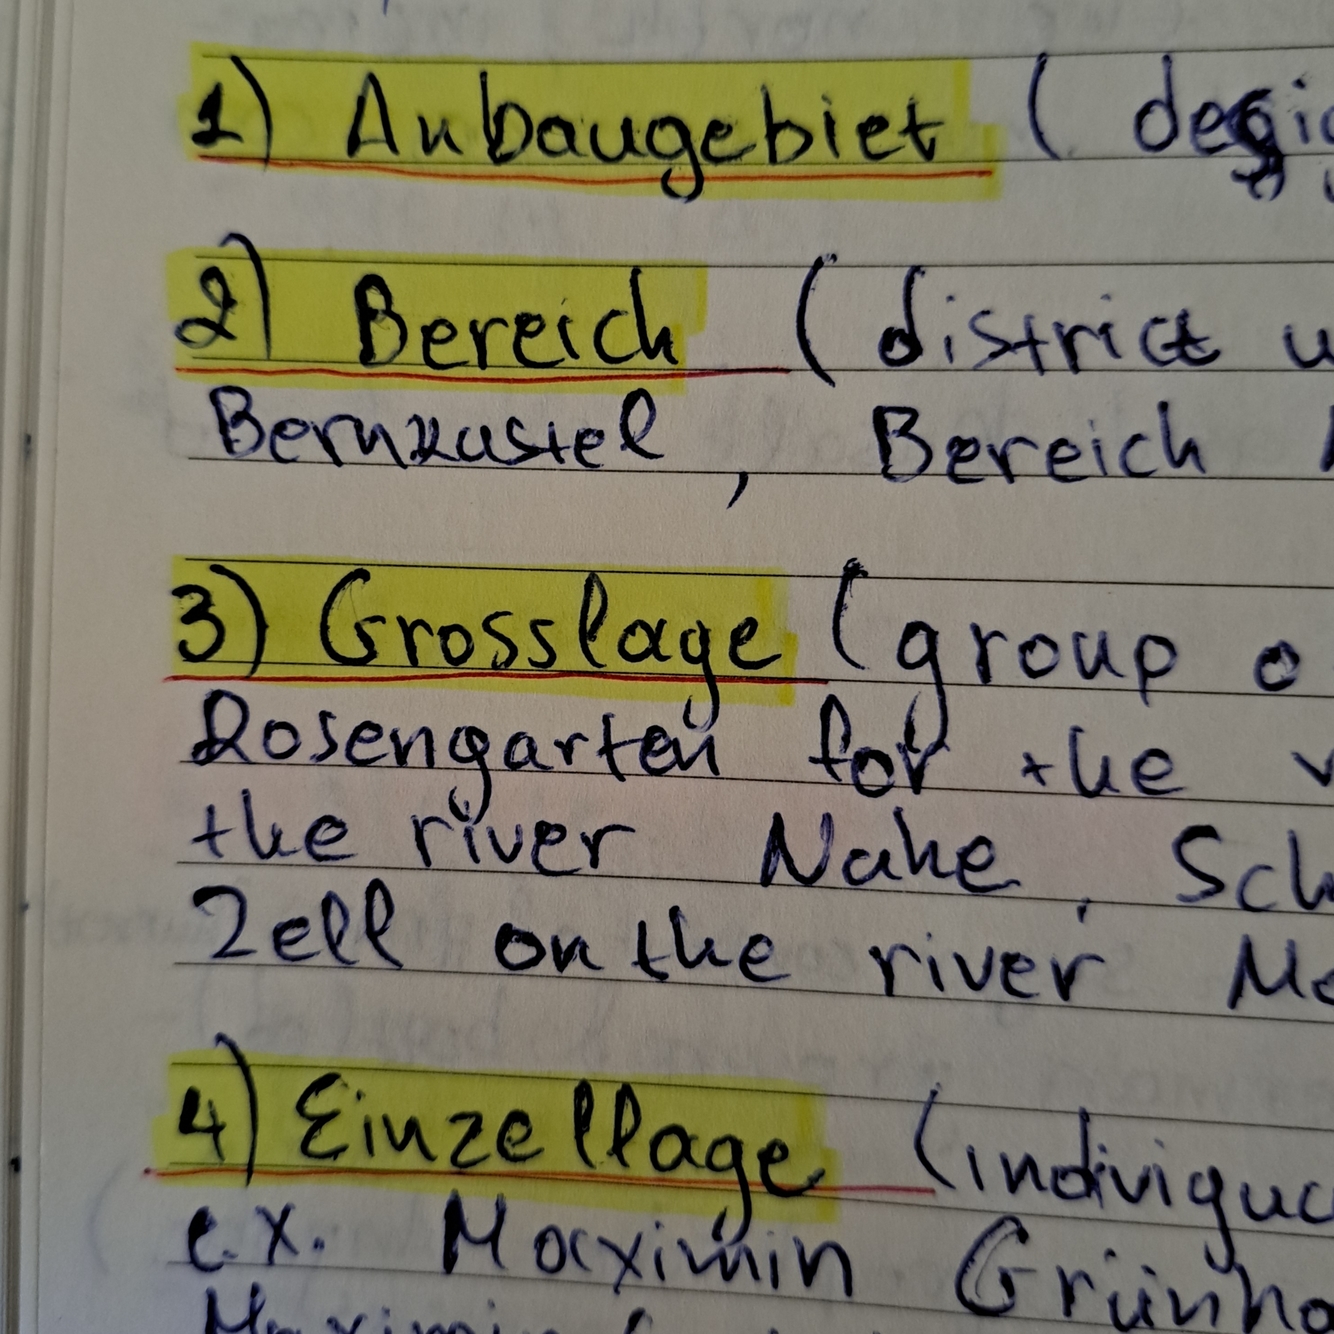 1) Anbaugebiet (
2) Bereich (district
Bernkastel, Bereich
3) Grosslage (group o
Rosengarten for the v
the river Nahe, Sch
Zell on the river Mo
4) Einzellage (indivigua
e.x. Maximin Grünho
Maximin